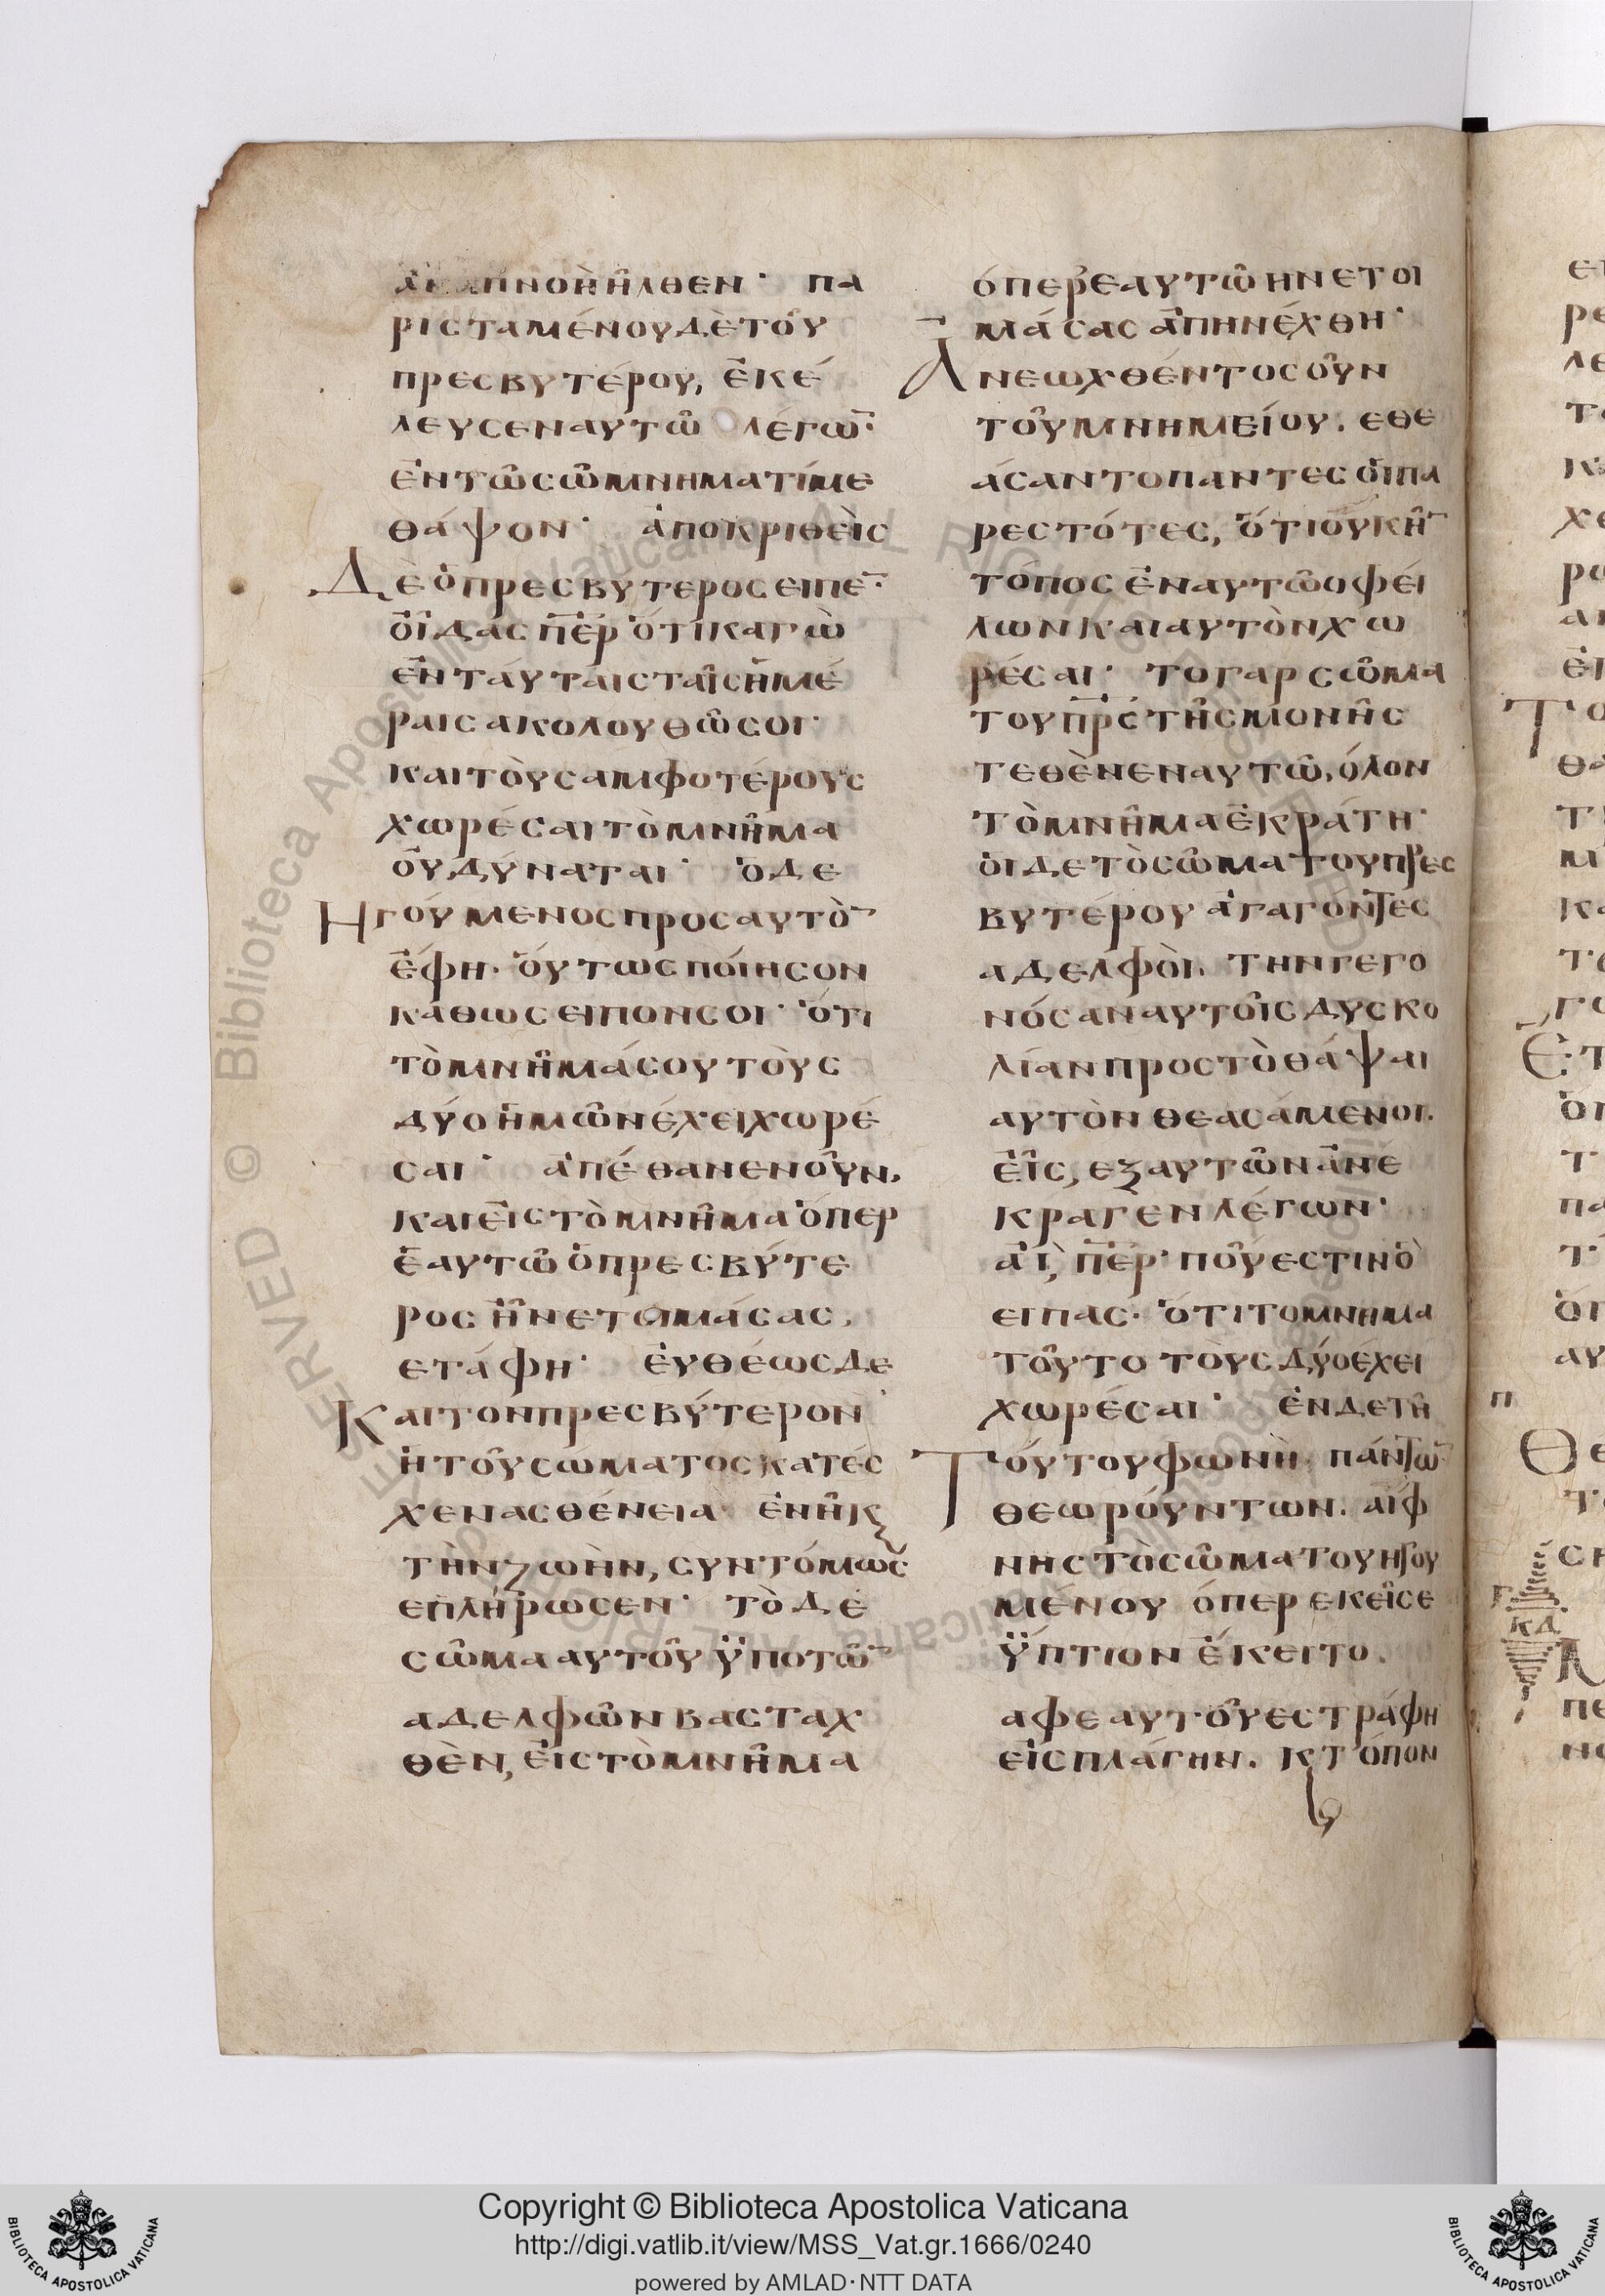 ἀναπνοὴν ἦλθεν· πα
ρισταμένου δὲ τοῦ
πρεσβυτέρου, ἐκέ
λευσεν αυτῶ λέγω̅·
ἐν τῶ σῶ μνήματί με
θάψον· ἀποκριθεὶς
Δὲ ὁ πρεσβυτερος ειπε̅·
οἶδας πε̅ρ ὅτι καγὼ
ἐν ταύταις ταῖς ἡμέ
ραις ακολουθῶ σοι·
και τοὺς αμφοτέρους
χωρέσαι τὸ μνῆμα
οὐ δύναται· ὁ δε
Ηγούμενος προς αυτὸ̅
ἔφη· ὅυτως ποίησον
καθως ειπον σοι· ὅτι
τὸ μνῆμά σου τοὺς
δύο ἡμῶν έχει χωρέ
σαι· ἀπέθανεν οὖν,
και εἰς τὸ μνῆμα ὅπερ
ἑαυτῶ ὁ πρεσβύτε
ρος ἦν ετοιμάσας,
ετάφη· ἐυθέως δε
Και τον πρεσβύτερον
ἡ τοῦ σώματος κατέσ
χεν ασθένεια· ἐν ῆ κ̀
τὴν ζωὴν, συντόμως
επλήρωσεν· τὸ δὲ
σῶμα αυτοῦ ϋπο τῶ̅
αδελφῶν βασταχ
θὲν, ἐις τὸ μνῆμα
όπερ ἑαυτῶ ην ετοι
μάσας ἀπηνέχθη·
Ανεωχθέντος οὖν
τοῦ μνημείου. εθε
άσαντο παντες ὁι πα
ρεστότες, ὅτι οὐκ ῆ̅
τόπος ἐν αυτῶ οφεί
λων και αυτὸν χω
ρέσαι· το γαρ σῶμα
του πρ̅ς τῆς μονῆς
τεθὲν εν αυτῶ, όλον
τὸ μνῆμα ἐκράτη·
ὁι δε τὸ σῶμα του πρεσ
βυτέρου ἀγαγόντες
αδελφὸι. την γεγο
νόσαν αυτοῖς δυσκο
λίαν προς τὸ θάψαι
αυτὸν θεασάμενοι.
ἐῖς, εξ αυτῶν ἀνέ
κραγεν λέγων·
ἆι, πε̅ρ· ποῦ εστιν ὃ
ειπας· ὅτι το μνημα
τοῦτο τοὺς δύο έχει
χωρέσαι· ἐν δε τῆ
Τούτου φωνῆ. πάντω̅
θεωρούντων. αἴφ
νης τὸ σῶμα του ηγου
μένου όπερ εκεῖσε
ϋπτιον έκειτο.
αφ εαυτοῦ εστράφη
εἰς πλάγην. κ̀ τόπον
Copyright © Biblioteca Apostolica Vaticana
http://digi.vatlib.it/view/MSS_Vat.gr.1666/0240
powered by AMLAD·NTT DATA
BIBLIOTECA APOSTOLICA VATICANA
BIBLIOTECA APOSTOLICA VATICANA